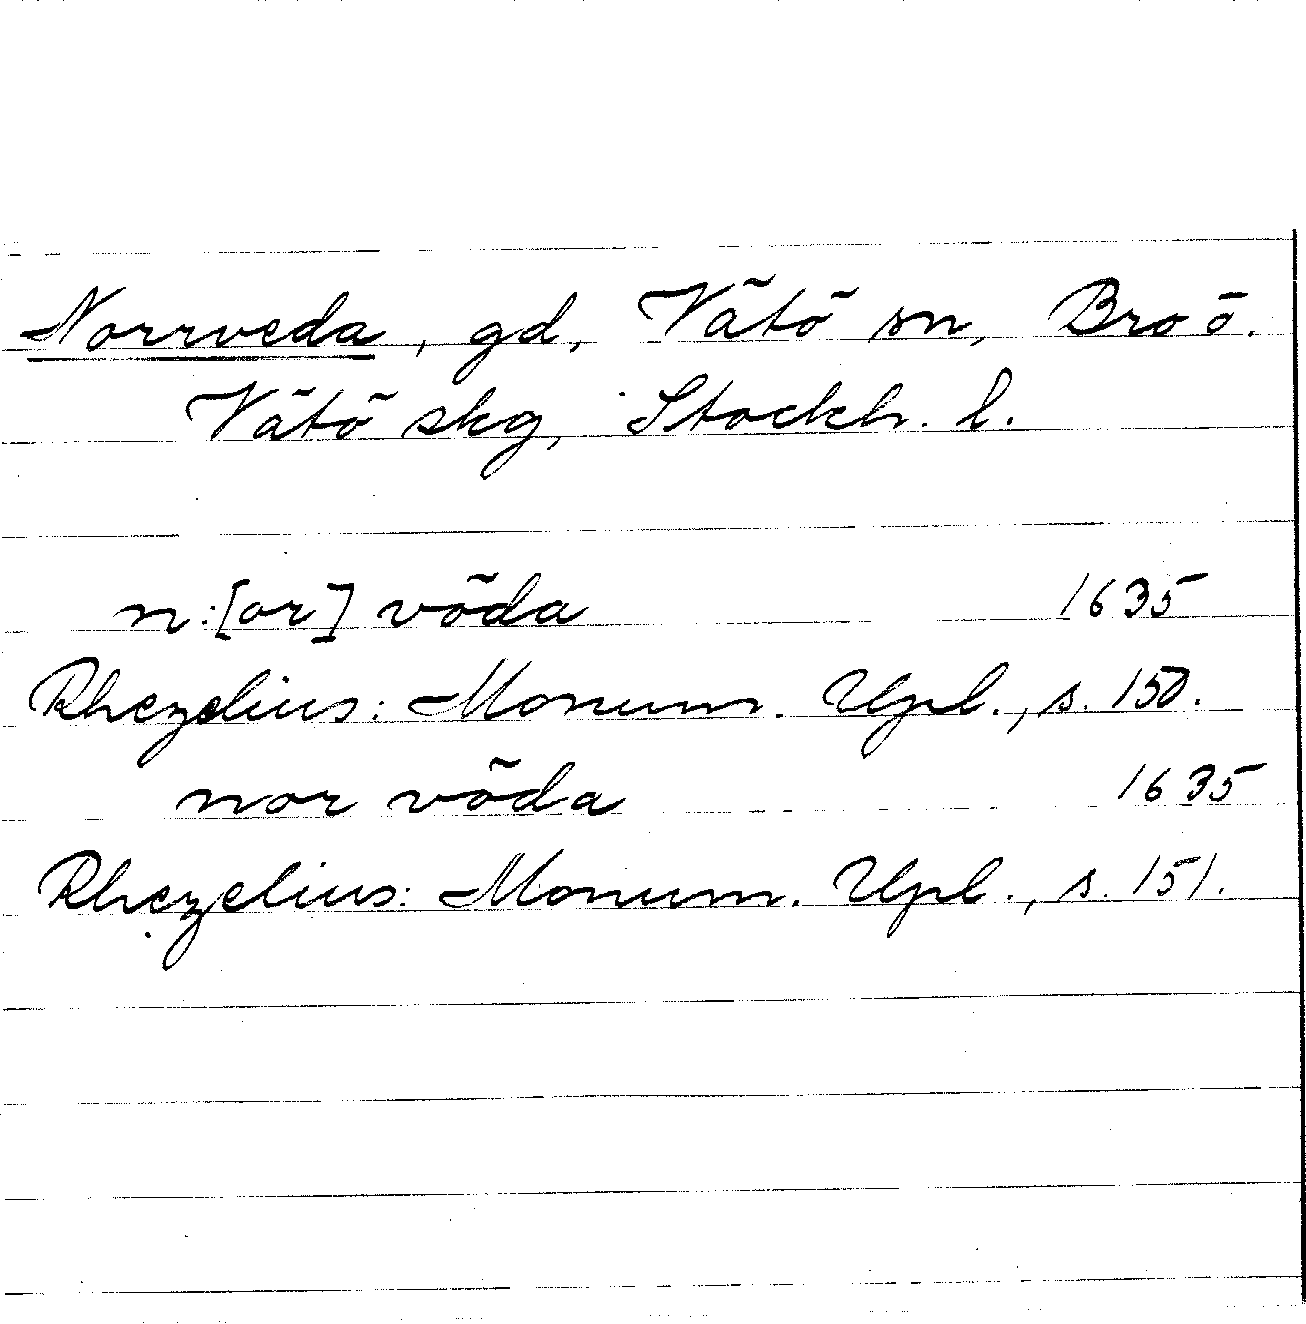 Norrveda, gd, Vätö sn, Bro ö.
Vätö skg, Stockh. l.
n:[or] vöda 1635
Rhezelius: Monum. Upl., s. 150.
nor vöda 1635
Rhezelius: Monum. Upl., s. 151.